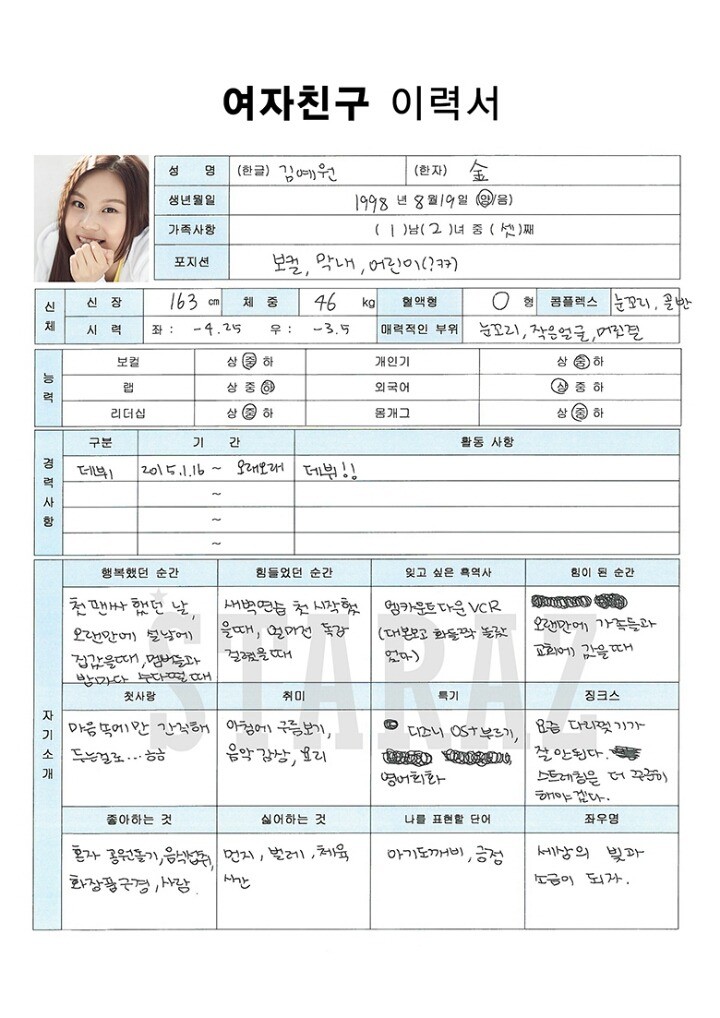 여자친구 이력서
성 명 (한글) 김예원 (한자) 金
생년월일 1998 년 8 월 19 일 (양/음)
가족사항 ( 1 )남( 2 )녀 중 ( 셋 )째
포지션 보컬, 막내, 어린이(?ㅋㅋ)
신체
신 장 163 cm 체 중 46 kg 혈액형 O 형 콤플렉스 눈꼬리, 골반
시 력 좌 : -4.25 우 : -3.5 매력적인 부위 눈꼬리, 작은얼굴, 머릿결
능력
보컬 상 중 하 개인기 상 중 하
랩 상 중 하 외국어 상 중 하
리더십 상 중 하 몸개그 상 중 하
경력사항
구분 기 간 활동 사항
데뷔 2015.1.16 ~ 오래오래 데뷔!!
~
~
~
자기소개
행복했던 순간
첫 팬싸 했던 날,
오랜만에 설날에
집갔을때, 멤버들과
밤마다 수다떨 때
힘들었던 순간
새벽연습 첫 시작했
을때, 얼마전 독감
걸렸을때
잊고 싶은 흑역사
엠카운트다운 VCR
(대본보고 화들짝 놀랐
었다)
힘이 된 순간
오랜만에 가족들과
교회에 갔을때
첫사랑
마음 속에만 간직해
두는걸로... ㅎㅎ
취미
아침에 구름보기,
음악 감상, 요리
특기
디즈니 OST 부르기,
영어회화
징크스
요즘 다리찢기가
잘 안된다.
스트레칭을 더 꾸준히
해야겠다.
좋아하는 것
혼자 공원돌기, 음식섭취,
화장품구경, 사람.
싫어하는 것
먼지, 벌레, 체육
시간
나를 표현할 단어
아기도깨비, 긍정
좌우명
세상의 빛과
소금이 되자.
STARAZ